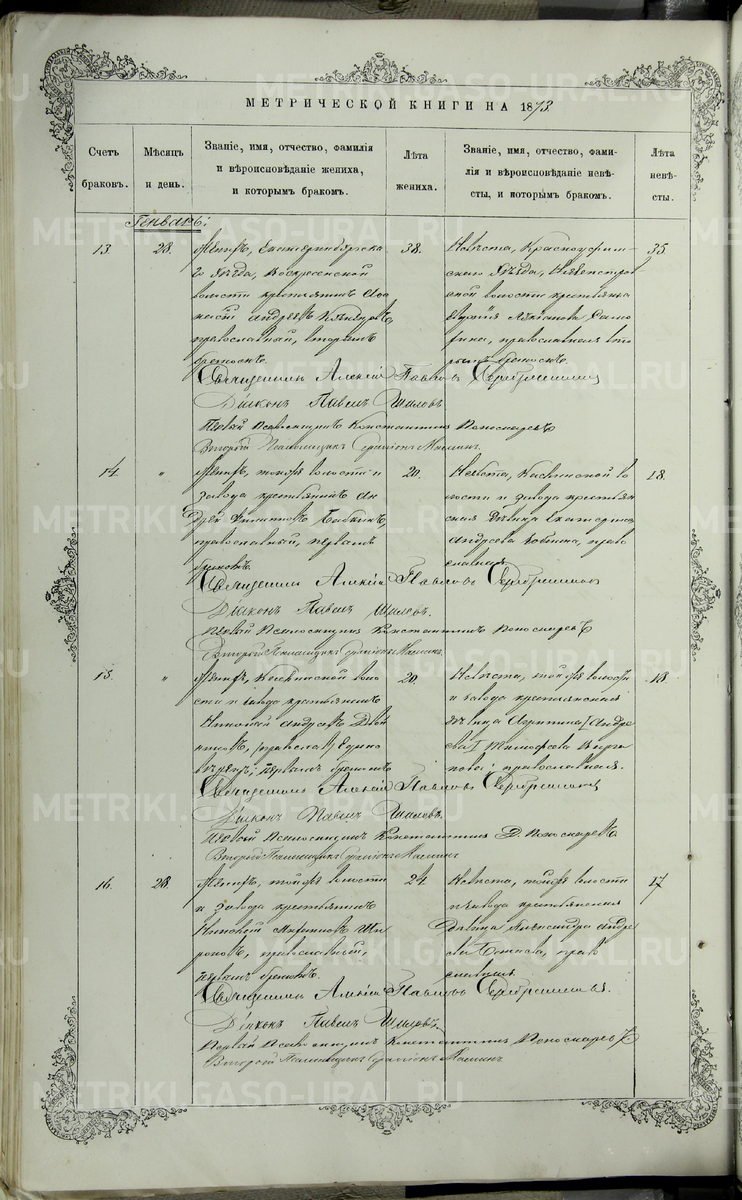 МЕТРИЧЕСКОЙ КНИГИ НА 1873.
Счетъ браковъ.
Мѣсяцъ и день.
Званіе, имя, отчество, фамилія
и вѣроисповѣданіе жениха,
и которымъ бракомъ.
Лѣта жениха.
Званіе, имя, отчество, фами-
лія и вѣроисповѣданіе невѣ-
сты, и которымъ бракомъ.
Лѣта невѣ-
сты.
Генварь:
13. 28.
Женихъ, Екатеринбургска
го Уѣзда, Воскресенской
волости крестьянинъ
Андреевъ
православный, вторымъ
бракомъ.
38.
Невѣста, Красноуфим
скаго Уѣзда,
ской волости крестьянка
православная вто
рымъ бракомъ.
35.
Священникъ Алексій Павловъ Серебренниковъ
Діаконъ Павелъ Шиловъ
Первый Псаломщикъ Константинъ Пономаревъ
Второй Псаломщикъ Мамин
14. "
Женихъ, тойже волости и
завода крестьянинъ Ан
дрей Филиповъ Бабкинъ,
православный, первымъ
бракомъ.
20.
Невѣста, Каслинской во
лости и завода крестьян
ская дѣвица Екатерина
Андреева право
славная
18.
Священникъ Алексій Павловъ Серебренниковъ
Діаконъ Павелъ Шиловъ.
Первый Псаломщикъ Константинъ Пономаревъ
Второй Псаломщикъ Мамин.
15. "
Женихъ, Каслинской воло
сти и завода крестьянинъ
Николай Андреевъ
Едино
вѣрецъ, первымъ бракомъ
20.
Невѣста, тойже волости
и завода крестьянская
дѣвица Андре
ева
православная.
18.
Священникъ Алексій Павловъ Серебренниковъ
Діаконъ Павелъ Шиловъ.
Первый Псаломщикъ Константинъ Пономаревъ
Второй Псаломщикъ Мамин
16. 28.
Женихъ, тойже волости
и завода крестьянинъ
Ши
роковъ, православный,
первымъ бракомъ.
24.
Невѣста, тойже волости
и завода крестьянская
дѣвица Александра Андре
ева право
славная
17
Священникъ Алексій Павловъ Серебренниковъ.
Діаконъ Павелъ Шиловъ.
Первый Псаломщикъ Константинъ Пономаревъ
Второй Псаломщикъ Мамин
METRIKI.GASO-URAL.RU